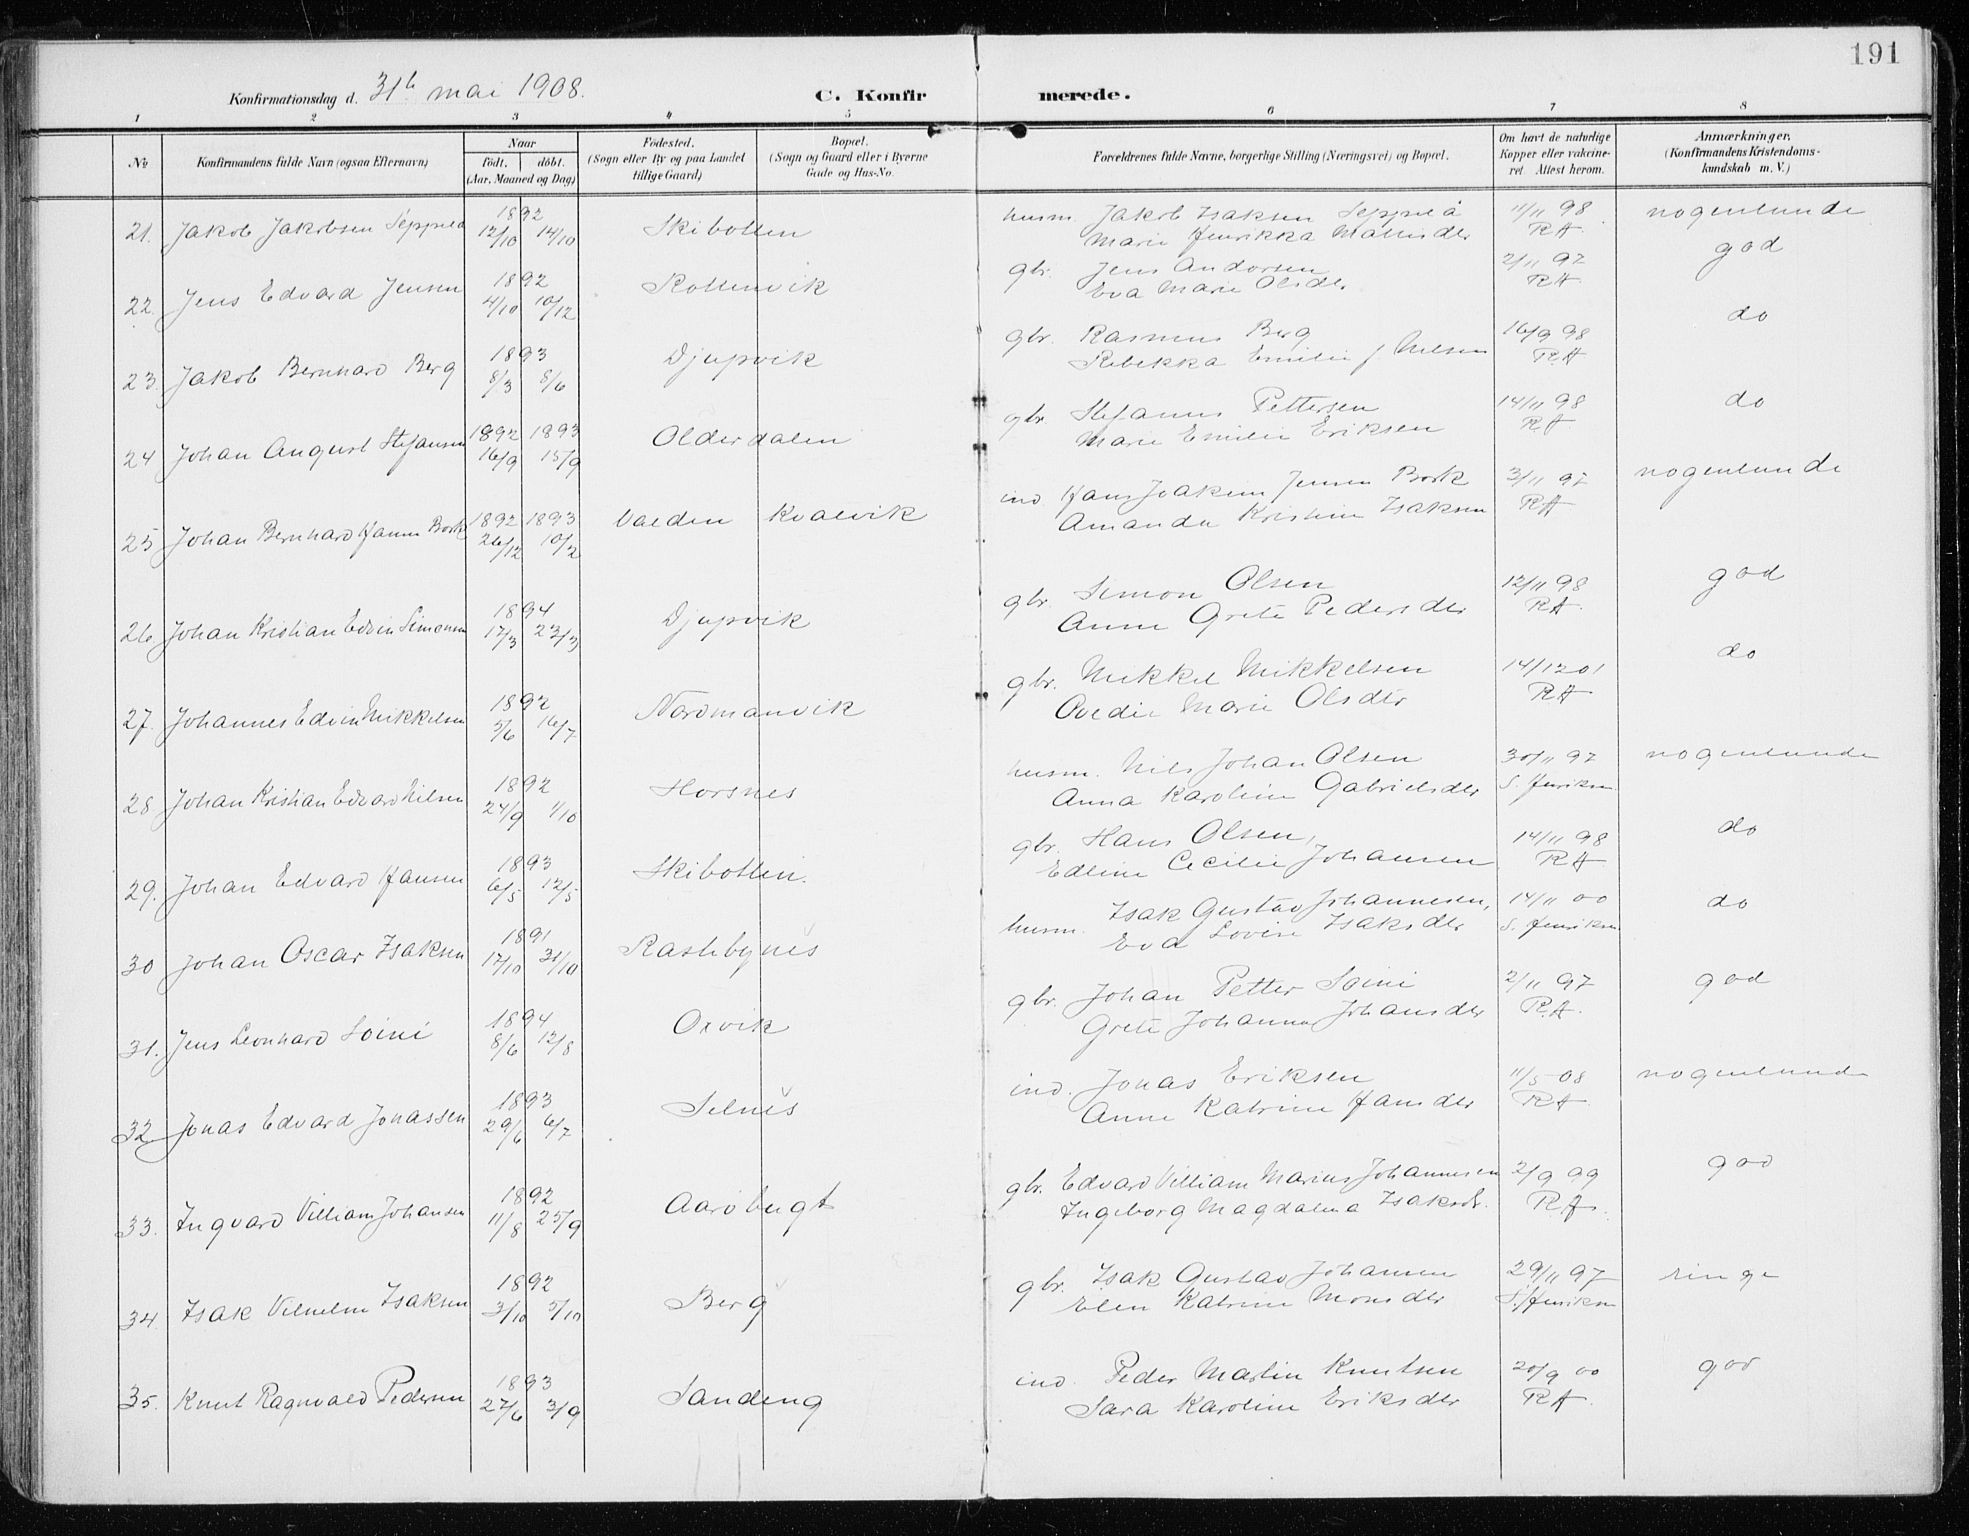 191
Konfirmationsdag d. 31te mai 1908.
C. Konfirmerede.
1 2 3 4 5 6 7 8
No
Konfirmandens fulde Navn (ogsaa Efternavn)
Naar
født. døbt.
(Aar, Maaned og Dag)
Fødested.
(Sogn eller By og paa Landet
tillige Gaard)
Bopæl.
(Sogn og Gaard eller i Byerne
Gade og Hus-No.
Forældrenes fulde Navne, borgerlige Stilling (Næringsvei) og Bopæl.
Om havt de naturlige
Kopper eller vakcine-
ret. Attest herom.
Anmærkninger.
(Konfirmandens Kristendoms-
kundskab m. V.)
21. Jakob Jakobsen Seppälä 1892 12/10 14/10 Skibotten husm. Jakob Isaksen Seppelä 11/11 98 nogenlunde
Marie Henrikka Mattisdtr RA
22. Jens Edvard Jensen 1892 4/10 10/12 Rottenvik gbr. Jens Andersen 2/11 97 god
Eva Marie Olsdtr RA
23. Jakob Bernhard Berg 1893 8/3 8/6 Djupvik gbr. Rasmus Berg 16/9 98 do
Rebekka Emilie f Nilsen RA
24 Johan August Stefansen 1892 16/9 1893 15/9 Olderdalen gbr. Stefanus Pettersen 14/11 98 do
Marie Emilie Eriksen RA
25 Johan Bernhard Hansen Bork 1892 26/12 1893 10/2 Valden Kvalvik ind Hans Joakim Jensen Bork 3/11 97 nogenlunde
Amanda Kristine Isaksen RA
26 Johan Kristian Edvin Simonsen 1894 17/3 23/3 Djupvik gbr. Simon Olsen 12/11 98 god
Anne Grete Pedersdtr RA
27. Johannes Edvin Mikkelsen 1892 5/6 16/7 Nordmanvik gbr. Mikkel Mikkelsen 14/12 01 do
Ovedie Marie Olsdtr RA
28 Johan Kristian Edvard Nilsen 1892 24/9 1/10 Horsnes husm. Nils Johan Olsen 30/11 97 nogenlunde
Anna Karoline Gabrielsdtr S. Henriksen
29. Johan Edvard Hansen 1893 6/5 12/5 Skibotten. gbr. Hans Olsen, 14/11 98 do
Edline Cecilie Johansen RA
30 Johan Oscar Isaksen 1891 17/10 31/10 Rastebynes husm. Isak Gustav Johannesen, 14/11 00 do
Eva Lovise Isaksdtr S. Henriksen
31. Jens Leonhard Soini 1894 8/6 12/8 Oxvik gbr. Johan Petter Soini 2/11 97 god
Grete Johanna Johansdtr R.A.
32 Jonas Edvard Jonassen 1893 29/6 6/7 Selnes ind. Jonas Eriksen 11/5 08 nogenlunde
Anne Katrine Hansdtr RA
33. Ingvard Villiam Johansen 1892 11/8 25/9 Aarøbugt gbr. Edvard Villiam Marius Johannesen 2/9 99 god
Ingeborg Magdalena Isaksdt. RA
34. Isak Vilhelm Isaksen 1892 3/10 5/10 Berg gbr. Isak Gustav Johansen 29/11 97 ringe
Elen Katrine Monsdtr S. Henriksen
35. Knut Ragnvald Pedersen 1893 27/6 3/9 Sandeng ind. Peder Martin Knutsen 20/9 00 god
Sara Karoline Eriksdtr RA.